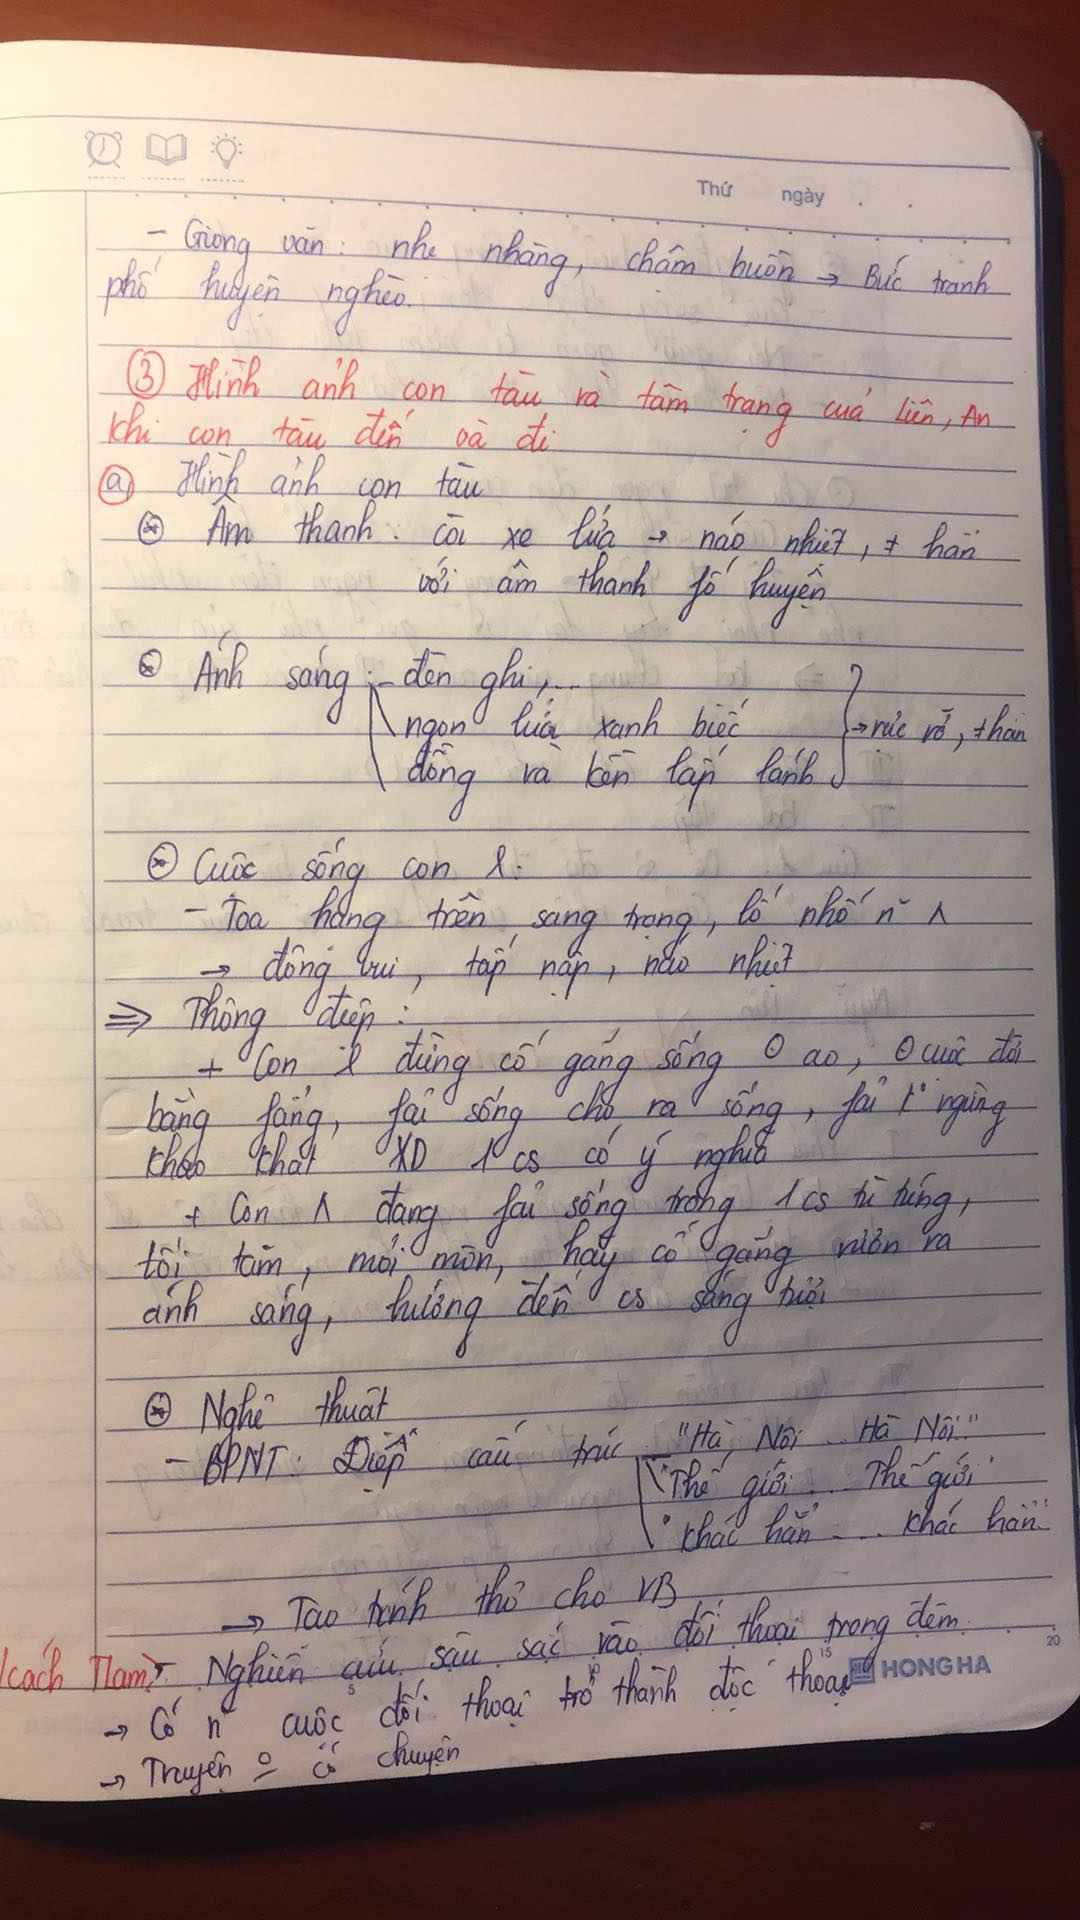 Thứ ngày . .
- Giọng văn: nhẹ nhàng, chậm buồn → Bức tranh
phố huyện nghèo.
③ Hình ảnh con tàu và tâm trạng của Liên, An
khi con tàu đến và đi
ⓐ Hình ảnh con tàu
⊛ Âm thanh: còi xe lửa → náo nhiệt, ≠ hẳn
với âm thanh fố huyện
⊛ Ánh sáng: - đèn ghi,...
ngọn lửa xanh biếc
đồng và kền lấp lánh → rực rỡ, ≠ hẳn
⊛ Cuộc sống con
- Toa hạng trên sang trọng, lố nhố n~
→ đông vui, tấp nập, náo nhiệt
⇒ Thông điệp:
+ Con đừng cố gắng sống ao, cuộc đời
bằng fẳng, fải sống cho ra sống, fải ngừng
khao khát XD 1 cs có ý nghĩa
+ Con đang fải sống trong 1 cs tù túng,
tối tăm, mỏi mòn, hãy cố gắng vươn ra
ánh sáng, hướng đến cs sáng tươi
⊛ Nghệ thuật
- BPNT: Điệp cấu trúc "Hà Nội... Hà Nội"
"Thế giới... Thế giới"
"khác hẳn .... khác hẳn"
→ Tạo tính thơ cho VB
- Nghiên cứu sâu sắc vào đối thoại trong đêm
HONG HA
20
5 10 15
→ Có n~ cuộc đối thoại trở thành độc thoại
→ Truyện có chuyện